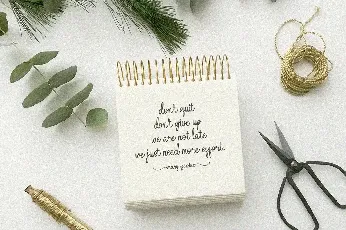 don't quit
don't give up
we are not late
we just need more effort.